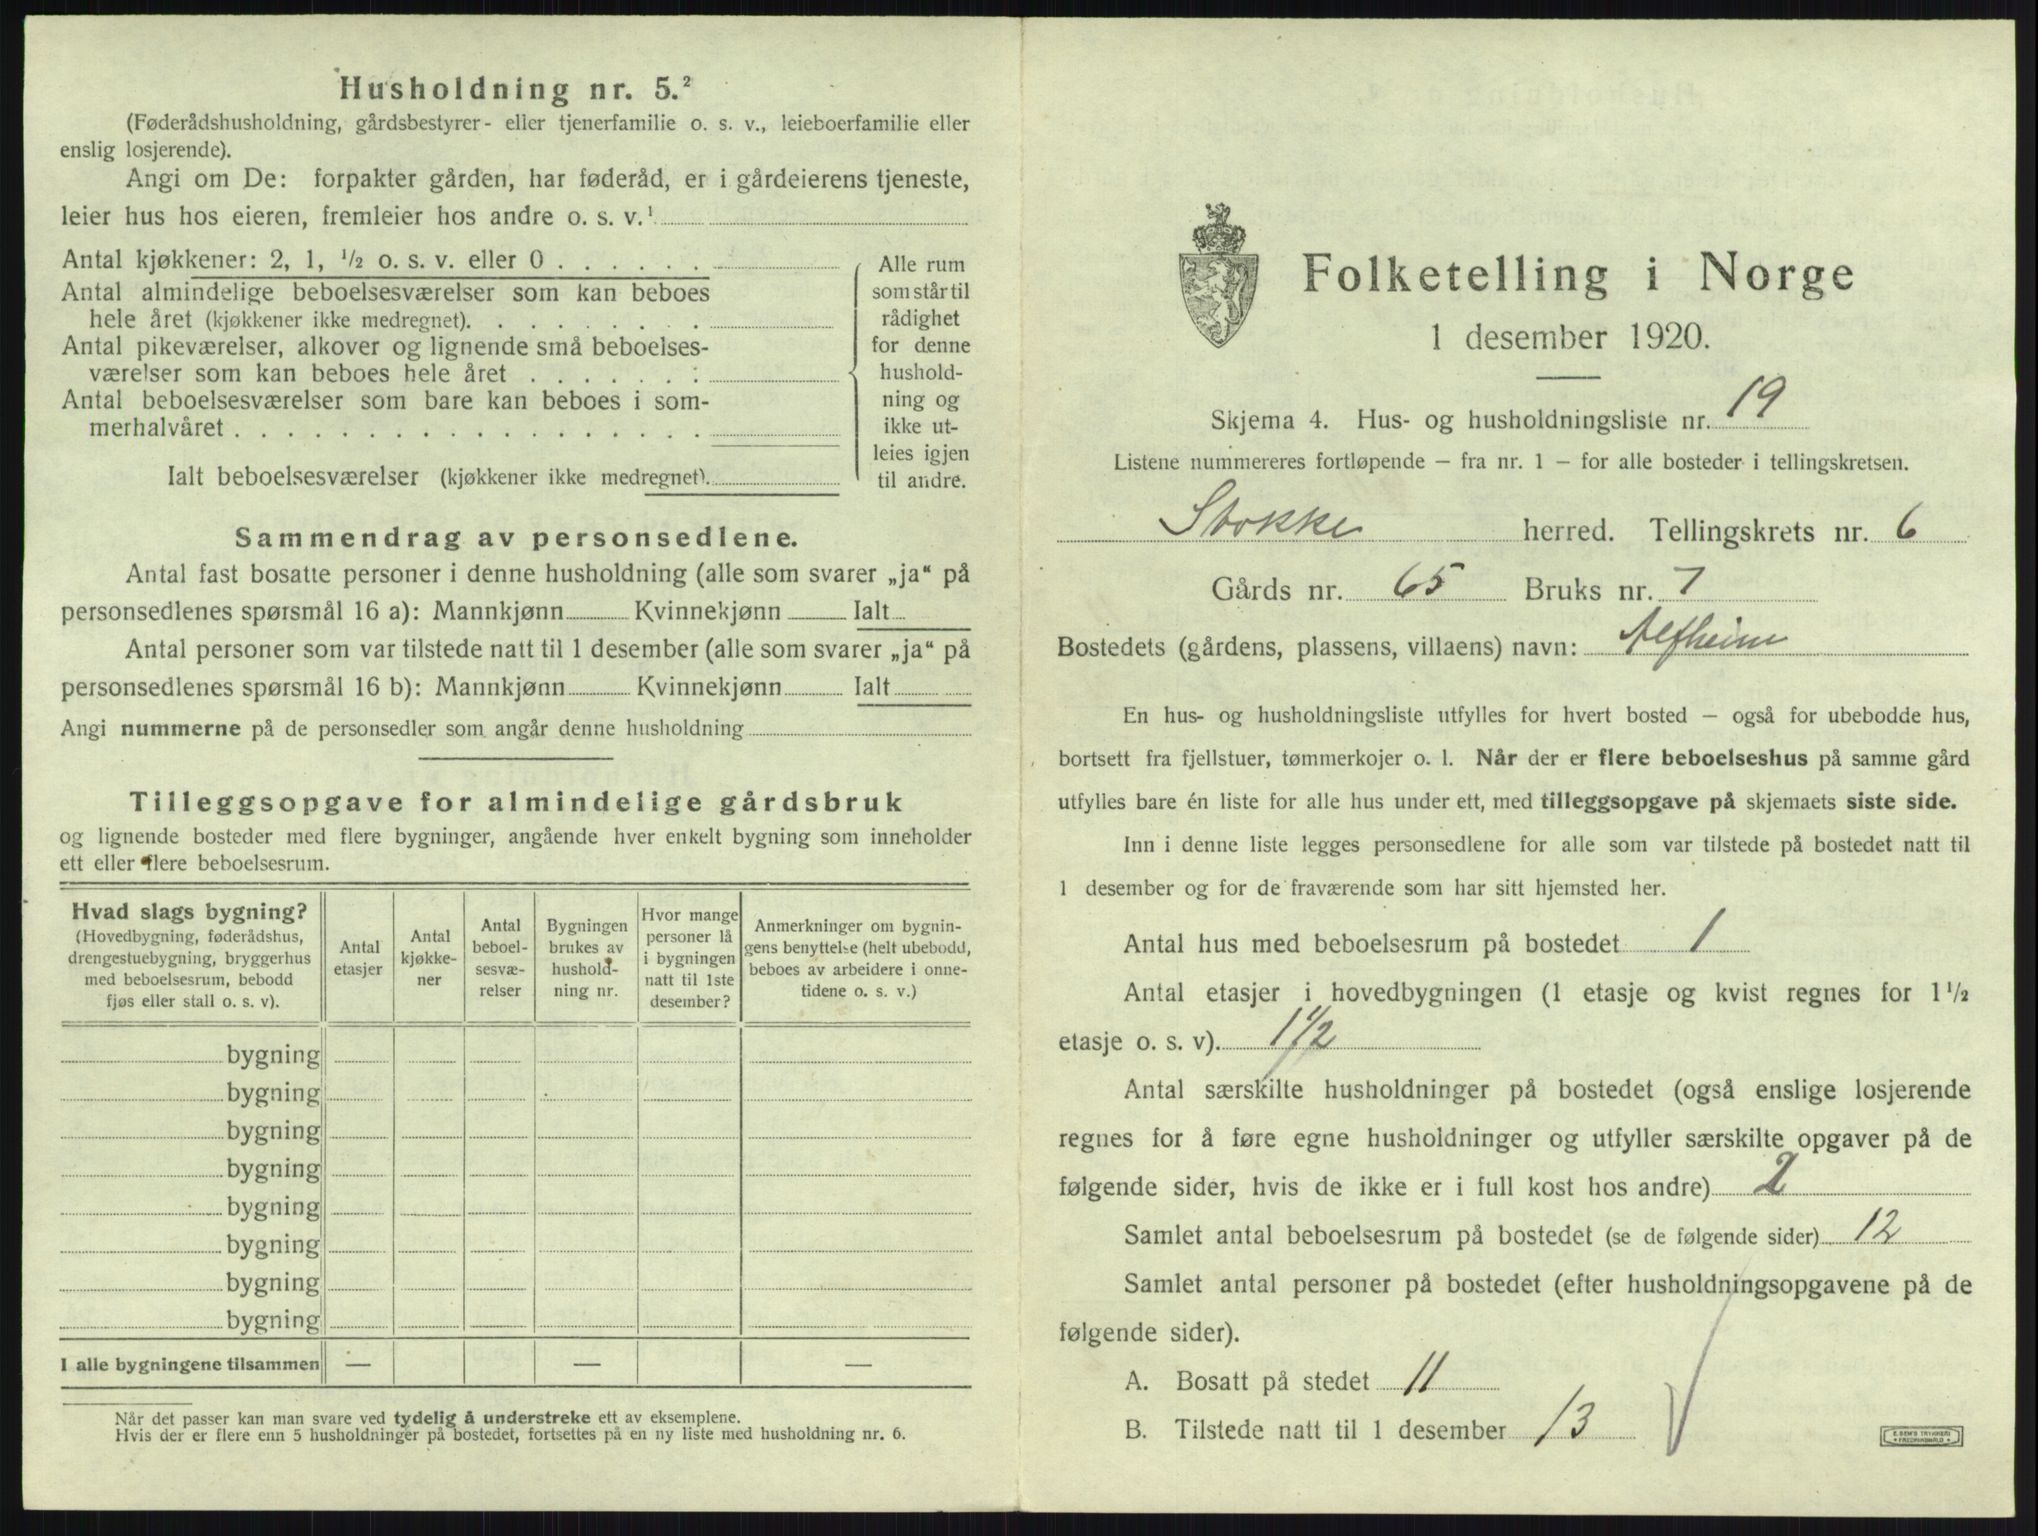 Husholdning nr. 5.²
(Føderådshusholdning, gårdsbestyrer- eller tjenerfamilie o. s. v., leieboerfamilie eller
enslig losjerende).
Angi om De: forpakter gården, har føderåd, er i gårdeierens tjeneste,
leier hus hos eieren, fremleier hos andre o. s. v.¹
Antal kjøkkener: 2, 1, ¹/₂ o. s. v. eller 0 . . . . . .
Antal almindelige beboelsesværelser som kan beboes
hele året (kjøkkener ikke medregnet). . . . . . . . .
Antal pikeværelser, alkover og lignende små beboelses-
værelser som kan beboes hele året . . . . . . . :
Antal beboelsesværelser som bare kan beboes i som-
merhalvåret . . . . . . . . . . . . . . . . . .
Ialt beboelsesværelser (kjøkkener ikke medregnet).
Alle rum
som står til
rådighet
for denne
hushold-
ning og
ikke ut-
leies igjen
til andre.
Sammendrag av personsedlene.
Antal fast bosatte personer i denne husholdning (alle som svarer „ja“ på
personsedlenes spørsmål 16 a): Mannkjønn Kvinnekjønn Ialt
Antal personer som var tilstede natt til 1 desember (alle som svarer „ja“ på
personsedlenes spørsmål 16 b): Mannkjønn Kvinnekjønn Ialt
Angi nummerne på de personsedler som angår denne husholdning
Tilleggsopgave for almindelige gårdsbruk
og lignende bosteder med flere bygninger, angående hver enkelt bygning som inneholder
ett eller flere beboelsesrum.
Hvad slags bygning?
(Hovedbygning, føderådshus,
drengestuebygning, bryggerhus
med beboelsesrum, bebodd
fjøs eller stall o. s. v).
Antal
etasjer
Antal
kjøkke-
ner
Antal
beboel-
sesvæ-
relser
Bygningen
brukes av
hushold-
ning nr.
Hvor mange
personer lå
i bygningen
natt til 1ste
desember?
Anmerkninger om bygnin-
gens benyttelse (helt ubebodd,
beboes av arbeidere i onne-
tidene o. s. v.)
bygning
bygning
bygning
bygning
bygning
bygning
bygning
bygning
I alle bygningene tilsammen — — —
Når det passer kan man svare ved tydelig å understreke ett av eksemplene.
Hvis der er flere enn 5 husholdninger på bostedet, fortsettes på en ny liste med husholdning nr. 6.
Folketelling i Norge
1 desember 1920.
Skjema 4. Hus- og husholdningsliste nr. 19
Listene nummereres fortløpende — fra nr. 1 — for alle bosteder i tellingskretsen.
Stokke herred. Tellingskrets nr. 6
Gårds nr. 65 Bruks nr. 7
Bostedets (gårdens, plassens, villaens) navn: Alfheim
En hus- og husholdningsliste utfylles for hvert bosted — også for ubebodde hus,
bortsett fra fjellstuer, tømmerkojer o. l. Når der er flere beboelseshus på samme gård
utfylles bare én liste for alle hus under ett, med tilleggsopgave på skjemaets siste side.
Inn i denne liste legges personsedlene for alle som var tilstede på bostedet natt til
1 desember og for de fraværende som har sitt hjemsted her.
Antal hus med beboelsesrum på bostedet 1
Antal etasjer i hovedbygningen (1 etasje og kvist regnes for 1 ¹/₂
etasje o. s. v). 1 1/2
Antal særskilte husholdninger på bostedet (også enslige losjerende
regnes for å føre egne husholdninger og utfyller særskilte opgaver på de
følgende sider, hvis de ikke er i full kost hos andre) 2
Samlet antal beboelsesrum på bostedet (se de følgende sider) 12
Samlet antal personer på bostedet (efter husholdningsopgavene på de
følgende sider).
A. Bosatt på stedet 11
B. Tilstede natt til 1 desember 13
E. SEM'S TRYKKERI
FREDRIKSHALD